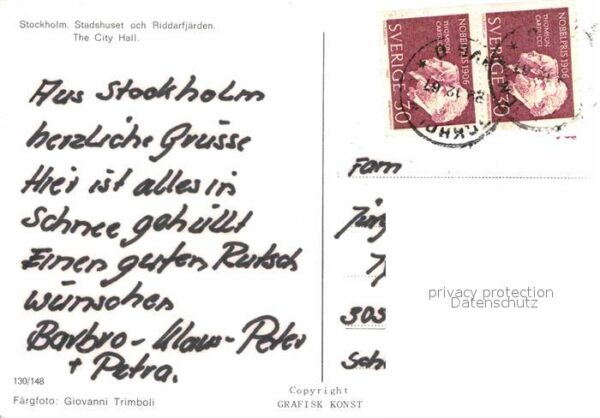 Stockholm. Stadshuset och Riddarfjärden.
The City Hall.
Aus Stockholm
herzliche Grüsse
Hier ist alles in
Schnee gehüllt
Einen guten Rutsch
wünschen
Barbro - Klaus - Peter
+ Petra.
130/148
Färgfoto: Giovanni Trimboli
Copyright
GRAFISK KONST
NOBELPRIS 1906
THOMSON
CARDUCCI
SVERIGE 30
NOBELPRIS 1906
THOMSON
CARDUCCI
SVERIGE 30
Fam
Jürg
303
Sch
privacy protection
Datenschutz